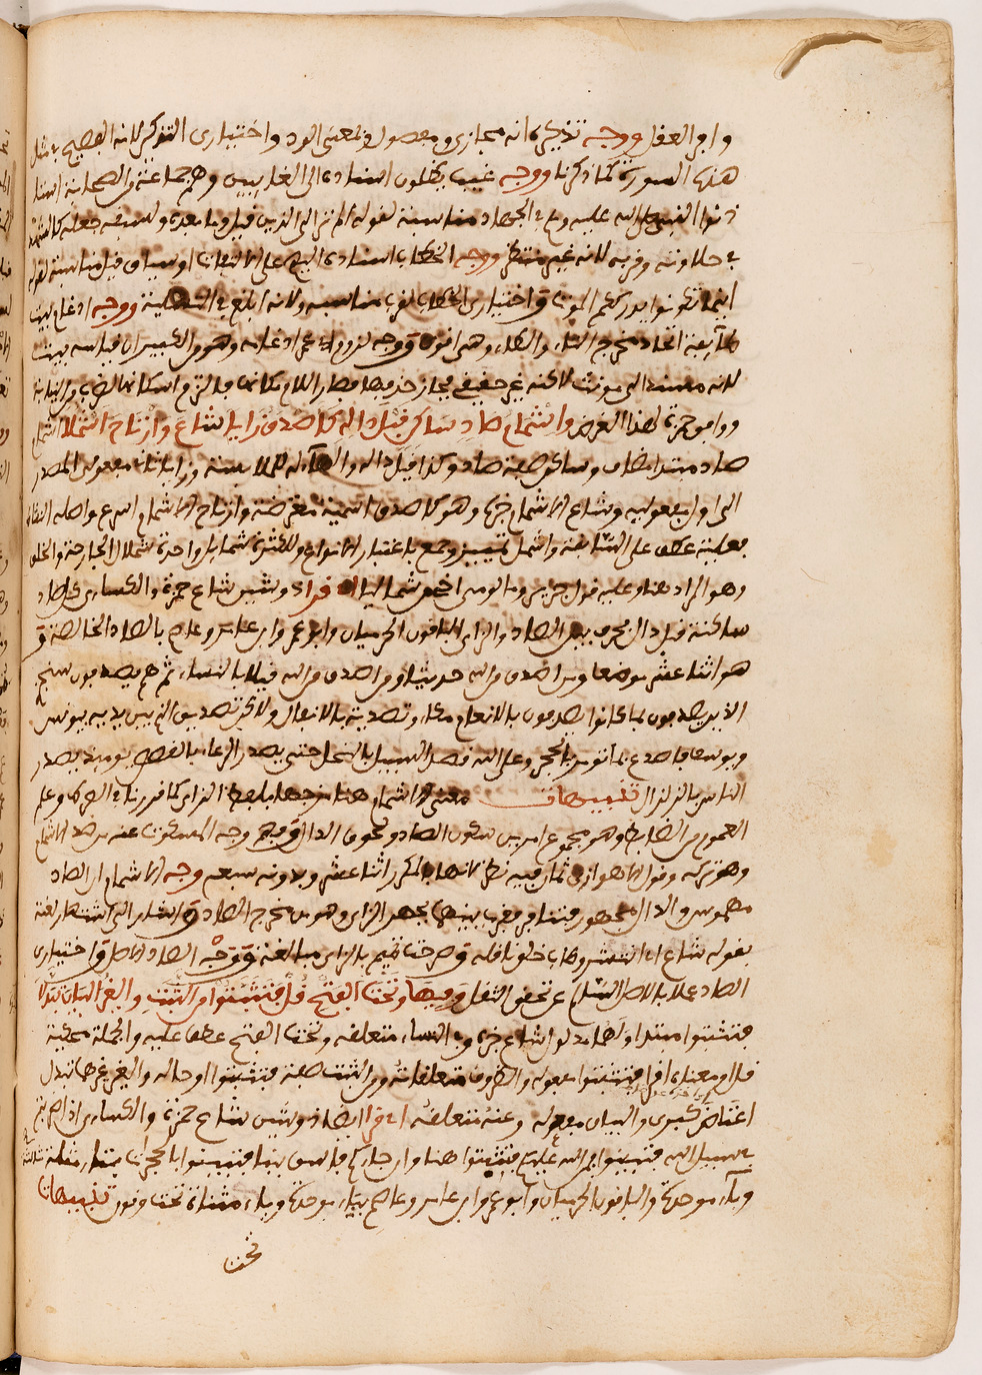 وابو العفل ووجه تذكيره انه مجازي ومفصول ولمعنى الود واختياري التذكير لانه الفصيح في مثل
هذه الصورة كما ذكرنا ووجه غيب يظلمون اسناده الى الغايبين وهم جماعة من الصحابة استا
ذنوا النبي صلى الله عليه وسلم في الجهاد مناسبة لقوله الم تر الى الذين قيل وما بعده
في حلاوته وقربه لانه غير منتظر ووجه الخطاب اسناده اليهم على الالتفات او سياق قبل مناسبة لقوله
اينما تكونوا يدرككم الموت واختياري الخطاب لقرب مناسبه ولانه ابلغ في التسلية ووجه ادغام بيت
طائفة اتحاد مخرج التاء والطاء وهي اقوى ووجه لزوم ابي عمرو ادغامه وهو من الكبير ان قياسه بيتت
لانه مسند الى مونث لاكنه غير حقيقي فجاز حذفها فصار اللام مكانها فالتزم اسكانها
ووافق حمزة لهذا الغرض واشمام صاد ساكن قبل داله كاصدق زايا شاع وارتاح اشملا
صاد مبتدا مضاف وساكن صفة صاد وكذا قبل داله والهاء له للملابسة وزايا ثاني مفعولي المصدر
الى اول مفعوليه وشاع الاشمام خبره وهو كاصدق اسمية معترضة وارتاح الاشمام اسرع واصله النشاط
فعلية عطف على السابقة واشمل تمييز وجمع باعتبار الانواع وللكثرة شمايل واحدة شمال الجارحة والخلق
وهو المراد هنا وعليه قول جرير وما لومي اخي من شماليا اي قرا ذو شين شاع حمزة والكساءي كل صاد
ساكنة قبل دال بحرف بين الصاد والزاي والباقون الحرميان وابو عمرو وابن عامر وعاصم بالصاد الخالصة و
هو اثنا عشر موضعا ومن اصدق من الله حديثا ومن اصدق من الله قيلا بالنساء ثم هم يصدفون سنجزي
الذين يصدفون بما كانوا يصدفون بالانعام مكاء وتصدية بالانفال ولاكن تصديق الذي بين يديه بيونس
ويوسف فاصدع بما تومر بالحجر وعلى الله قصد السبيل بالنحل حتى يصدر الرعاء بالقصص يوميذ يصدر
الناس بالزلزال تنبيهات معنى الاشمام هنا الزاي كما قررنا في الصراط وعلم
العموم من الضابط وهو مجموع امرين سكون الصاد ولحوق الدال وجه المسكوت عنه من ضد الاشمام
وهو تركه وقول الاهوازي ثمان فيه نظر لانها بالمكرر اثنا عشر وبدونه سبعة ووجه الاشمام ان الصاد
مهموس والدال مجهور فتنافرا فقرب بينهما بجهر الزاي وهو من مخرج الصاد واشار الى اشتهار لغة
بقوله شاع اي انتشر وطاب خلق ناقله وصرحت تميم بالزاي مبالغة ووجه الصاد الاصل واختياري
الصاد عملا بالاصل السالم عن تحقق الثقل وفيها وتحت الفتح قل فتثبتوا من الثبت والغير البيان تبدلا
فتثبتوا مبتدا ولهما مدلول شاع خبره وفي النساء متعلقه وتحت الفتح عطف عليه والجملة محكية
قل او معناه اقرا فتثبتوا مفعوله والظروف متعلقاته ومن الثبت صفة فتثبتوا او حاله والغير غيرهما تبدل
اعتاض كبرى والبيان مفعوله وعنه متعلقه اي قرا ذو شين شاع حمزة والكساءي اذا ضربتم
في سبيل الله فتثبتوا فمن الله عليكم فتثبتوا هنا وان جاءكم فاسق بنبا فتثبتوا بالحجرات بثاء مثلثة
وباء موحدة والباقون الحرميان وابو عمرو وابن عامر وعاصم بباء موحدة وياء مثناة تحت ونون تنبيهات
تحت